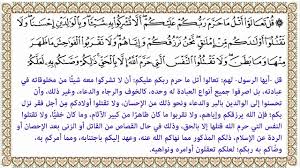 قُلْ تَعَالَوْا أَتْلُ مَا حَرَّمَ رَبُّكُمْ عَلَيْكُمْ أَلَّا تُشْرِكُوا بِهِ شَيْئًا وَبِالْوَالِدَيْنِ إِحْسَانًا وَلَا
تَقْتُلُوا أَوْلَادَكُم مِّنْ إِمْلَاقٍ نَّحْنُ نَرْزُقُكُمْ وَإِيَّاهُمْ وَلَا تَقْرَبُوا الْفَوَاحِشَ مَا ظَهَرَ
مِنْهَا وَمَا بَطَنَ وَلَا تَقْتُلُوا النَّفْسَ الَّتِي حَرَّمَ اللَّهُ إِلَّا بِالْحَقِّ ذَٰلِكُمْ وَصَّاكُم بِهِ لَعَلَّكُمْ تَعْقِلُونَ
قل -أيها الرسول- لهم: تعالوا أتل ما حرم ربكم عليكم: أن لا تشركوا معه شيئًا من مخلوقاته في
عبادته، بل اصرفوا جميع أنواع العبادة له وحده، كالخوف والرجاء والدعاء، وغير ذلك، وأن
تحسنوا إلى الوالدين بالبر والدعاء ونحو ذلك من الإحسان، ولا تقتلوا أولادكم مِن أجل فقر نزل
بكم؛ فإن الله يرزقكم وإياهم، ولا تقربوا ما كان ظاهرًا من كبير الآثام، وما كان خفيًّا، ولا تقتلوا
النفس التي حرم الله قتلها إلا بالحق، وذلك في حال القصاص من القاتل أو الزنى بعد الإحصان أو
الردة عن الإسلام، ذلكم المذكور مما نهاكم الله عنه، وعهد إليكم باجتنابه، ومما أمركم به، وصَّاكم
به ربكم؛ لعلكم تعقلون أوامره ونواهيه.